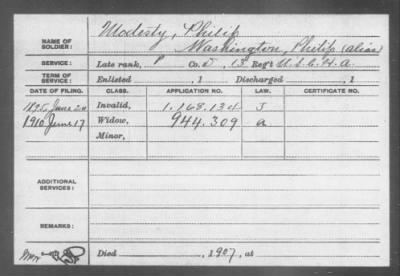 NAME OF SOLDIER: Modesty, Philip
Washington, Philip (alias)
SERVICE: Late rank, P Co. J, 13 Reg't U.S.C.H.A.
TERM OF SERVICE: Enlisted , 1 Discharged , 1
DATE OF FILING. CLASS. APPLICATION NO. LAW. CERTIFICATE NO.
June 20 Invalid, 1.168.134 J
1910 June 17 Widow, 944.309 a
Minor,
ADDITIONAL SERVICES:
REMARKS:
Died , 1907, at